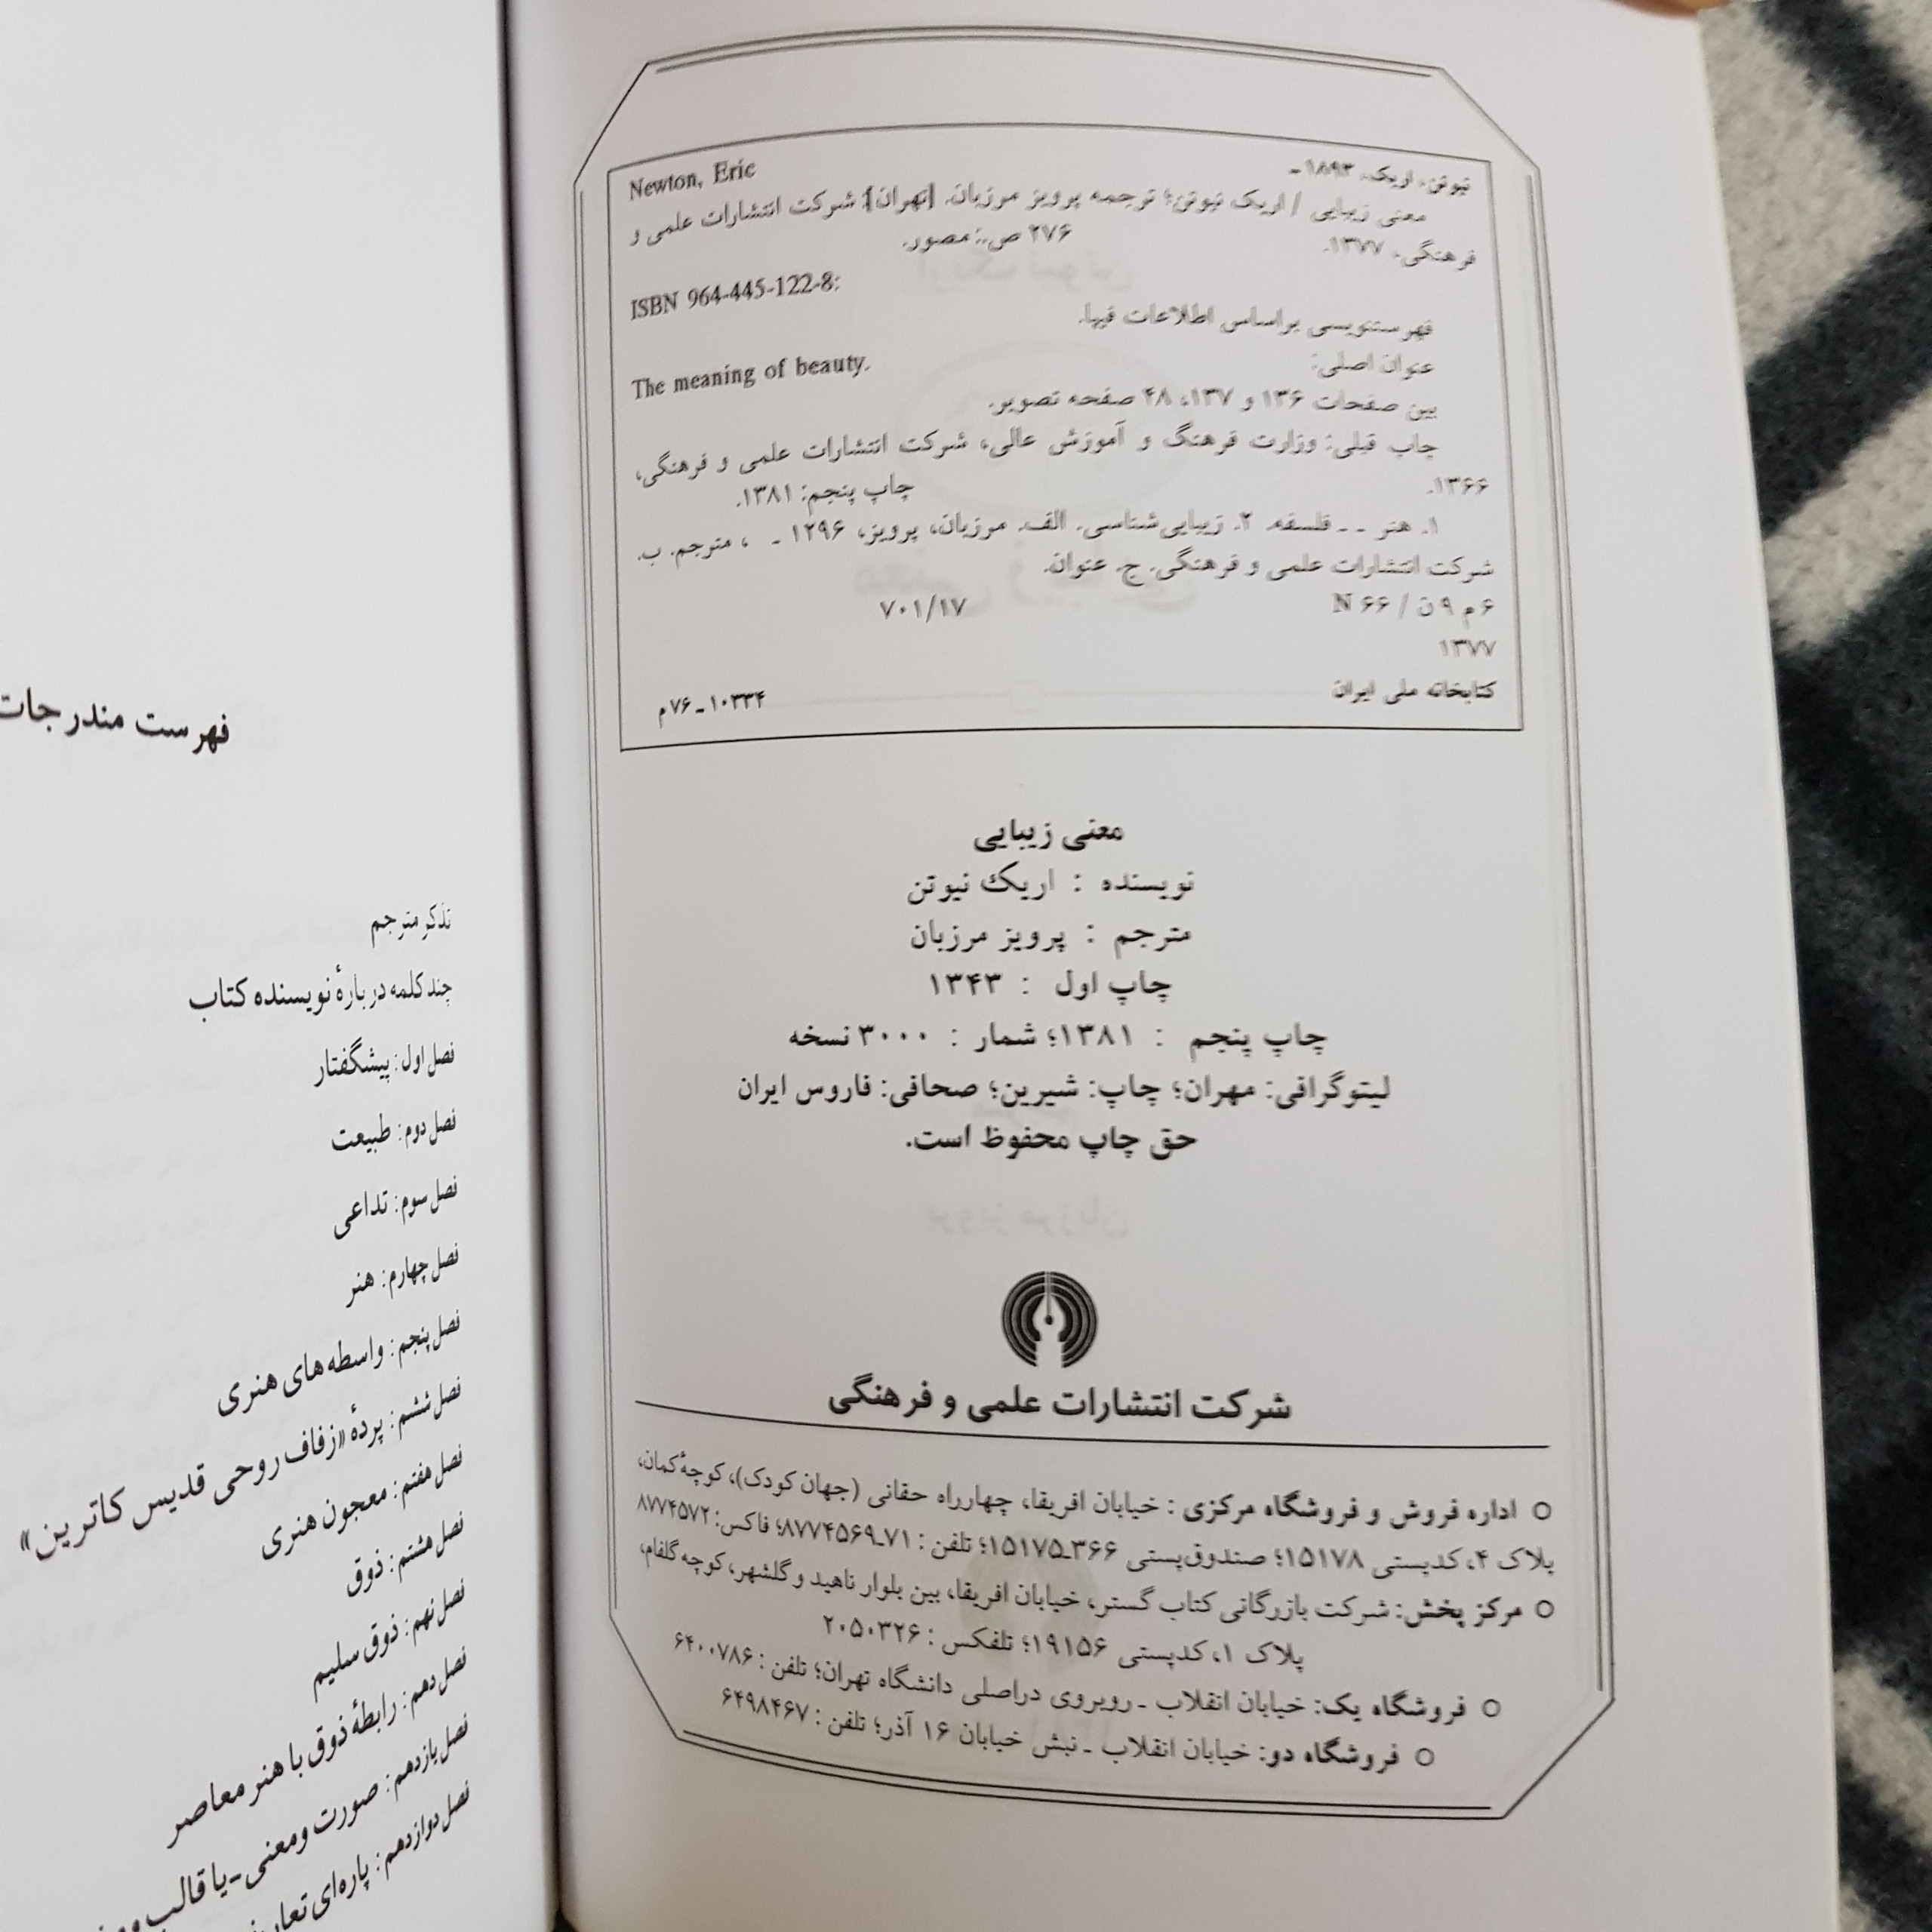 نیوتن، اریک، ۱۸۹۳ ـ Newton, Eric
معنی زیبایی / اریک نیوتن؛ ترجمه پرویز مرزبان. [تهران]: شرکت انتشارات علمی و
فرهنگی، ۱۳۷۷. ۲۷۶ ص.: مصور.
ISBN 964-445-122-8:
فهرستنویسی براساس اطلاعات فیپا.
عنوان اصلی: The meaning of beauty.
بین صفحات ۱۳۶ و ۱۳۷، ۴۸ صفحه تصویر.
چاپ قبلی: وزارت فرهنگ و آموزش عالی، شرکت انتشارات علمی و فرهنگی،
۱۳۶۶. چاپ پنجم: ۱۳۸۱.
۱. هنر ـ ـ فلسفه. ۲. زیبایی‌شناسی. الف. مرزبان، پرویز، ۱۲۹۶ ـ ، مترجم. ب.
شرکت انتشارات علمی و فرهنگی. ج. عنوان.
۶ م ۹ ن / N ۶۶ ۷۰۱/۱۷
۱۳۷۷
کتابخانه ملی ایران ۱۰۳۳۴ ـ ۷۶ م
معنی زیبایی
نویسنده : اریک نیوتن
مترجم : پرویز مرزبان
چاپ اول : ۱۳۴۳
چاپ پنجم : ۱۳۸۱؛ شمار : ۳۰۰۰ نسخه
لیتوگرافی: مهران؛ چاپ: شیرین؛ صحافی: فاروس ایران
حق چاپ محفوظ است.
شرکت انتشارات علمی و فرهنگی
○ اداره فروش و فروشگاه مرکزی : خیابان افریقا، چهارراه حقانی (جهان کودک)، کوچهٔ کمان،
پلاک ۴، کدپستی ۱۵۱۷۸؛ صندوق‌پستی ۳۶۶ـ۱۵۱۷۵؛ تلفن : ۷۱ـ۸۷۷۴۵۶۹؛ فاکس: ۸۷۷۴۵۷۲
○ مرکز پخش: شرکت بازرگانی کتاب گستر، خیابان افریقا، بین بلوار ناهید و گلشهر، کوچه گلفام،
پلاک ۱، کدپستی ۱۹۱۵۶؛ تلفکس : ۲۰۵۰۳۲۶
○ فروشگاه یک: خیابان انقلاب ـ روبروی دراصلی دانشگاه تهران؛ تلفن : ۶۴۰۰۷۸۶
○ فروشگاه دو: خیابان انقلاب ـ نبش خیابان ۱۶ آذر؛ تلفن : ۶۴۹۸۴۶۷
فهرست مندرجات
تذکر مترجم
چند کلمه دربارهٔ نویسنده کتاب
فصل اول: پیشگفتار
فصل دوم: طبیعت
فصل سوم: تداعی
فصل چهارم: هنر
فصل پنجم: واسطه‌های هنری
فصل ششم: پردهٔ «زفاف روحی قدیس کاترین»
فصل هفتم: معجون هنری
فصل هشتم: ذوق
فصل نهم: ذوق سلیم
فصل دهم: رابطهٔ ذوق با هنر معاصر
فصل یازدهم: صورت و معنی ـ یا قالب و
فصل دوازدهم: پاره‌ای